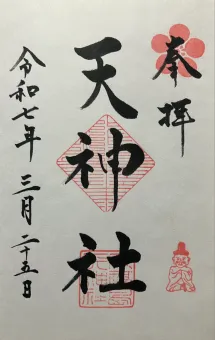 奉拝
天神社
令和七年 三月二十五日